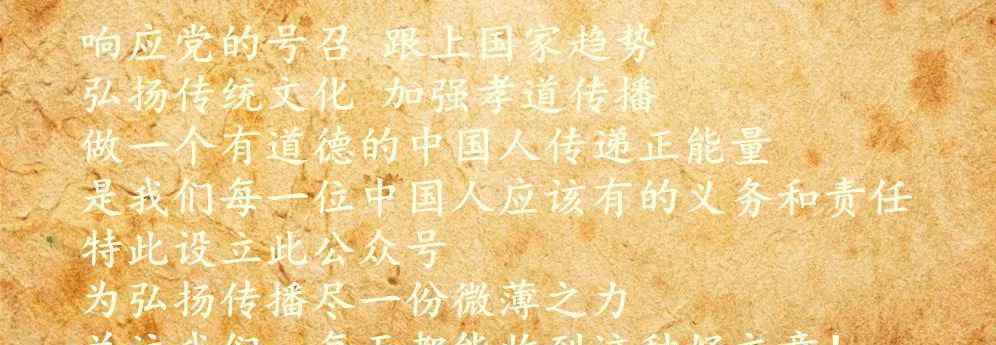 响应党的号召 跟上国家趋势
弘扬传统文化 加强孝道传播
做一个有道德的中国人传递正能量
是我们每一位中国人应该有的义务和责任
特此设立此公众号
为弘扬传播尽一份微薄之力
关注我们 每天都能收到这种好文章!